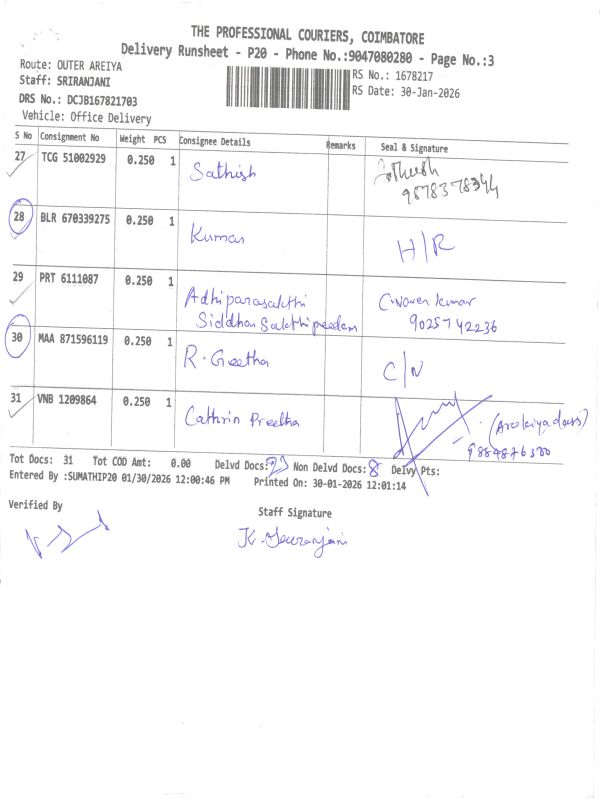 THE PROFESSIONAL COURIERS, COIMBATORE
Delivery Runsheet - P20 - Phone No.:9047080280 - Page No.:3
Route: OUTER AREIYA
Staff: SRIRANJANI
DRS No.: DCJB167821703
Vehicle: Office Delivery
RS No.: 1678217
RS Date: 30-Jan-2026
S No Consignment No Weight PCS Consignee Details Remarks Seal & Signature
27 TCG 51002929 0.250 1 Sathish Sathish
9578378344
28 BLR 670339275 0.250 1 Kumar H/R
29 PRT 6111087 0.250 1 Adhiparasakthi C.Naveen kumar
Siddhar Sakthi peedam 9025742236
30 MAA 871596119 0.250 1 R. Geetha C/N
31 VNB 1209864 0.250 1 Cathrin Preetha (Arokiyadoss)
9884876580
Tot Docs: 31 Tot COD Amt: 0.00 Delvd Docs: 23 Non Delvd Docs: 8 Delvy Pts:
Entered By :SUMATHIP20 01/30/2026 12:00:46 PM Printed On: 30-01-2026 12:01:14
Verified By Staff Signature